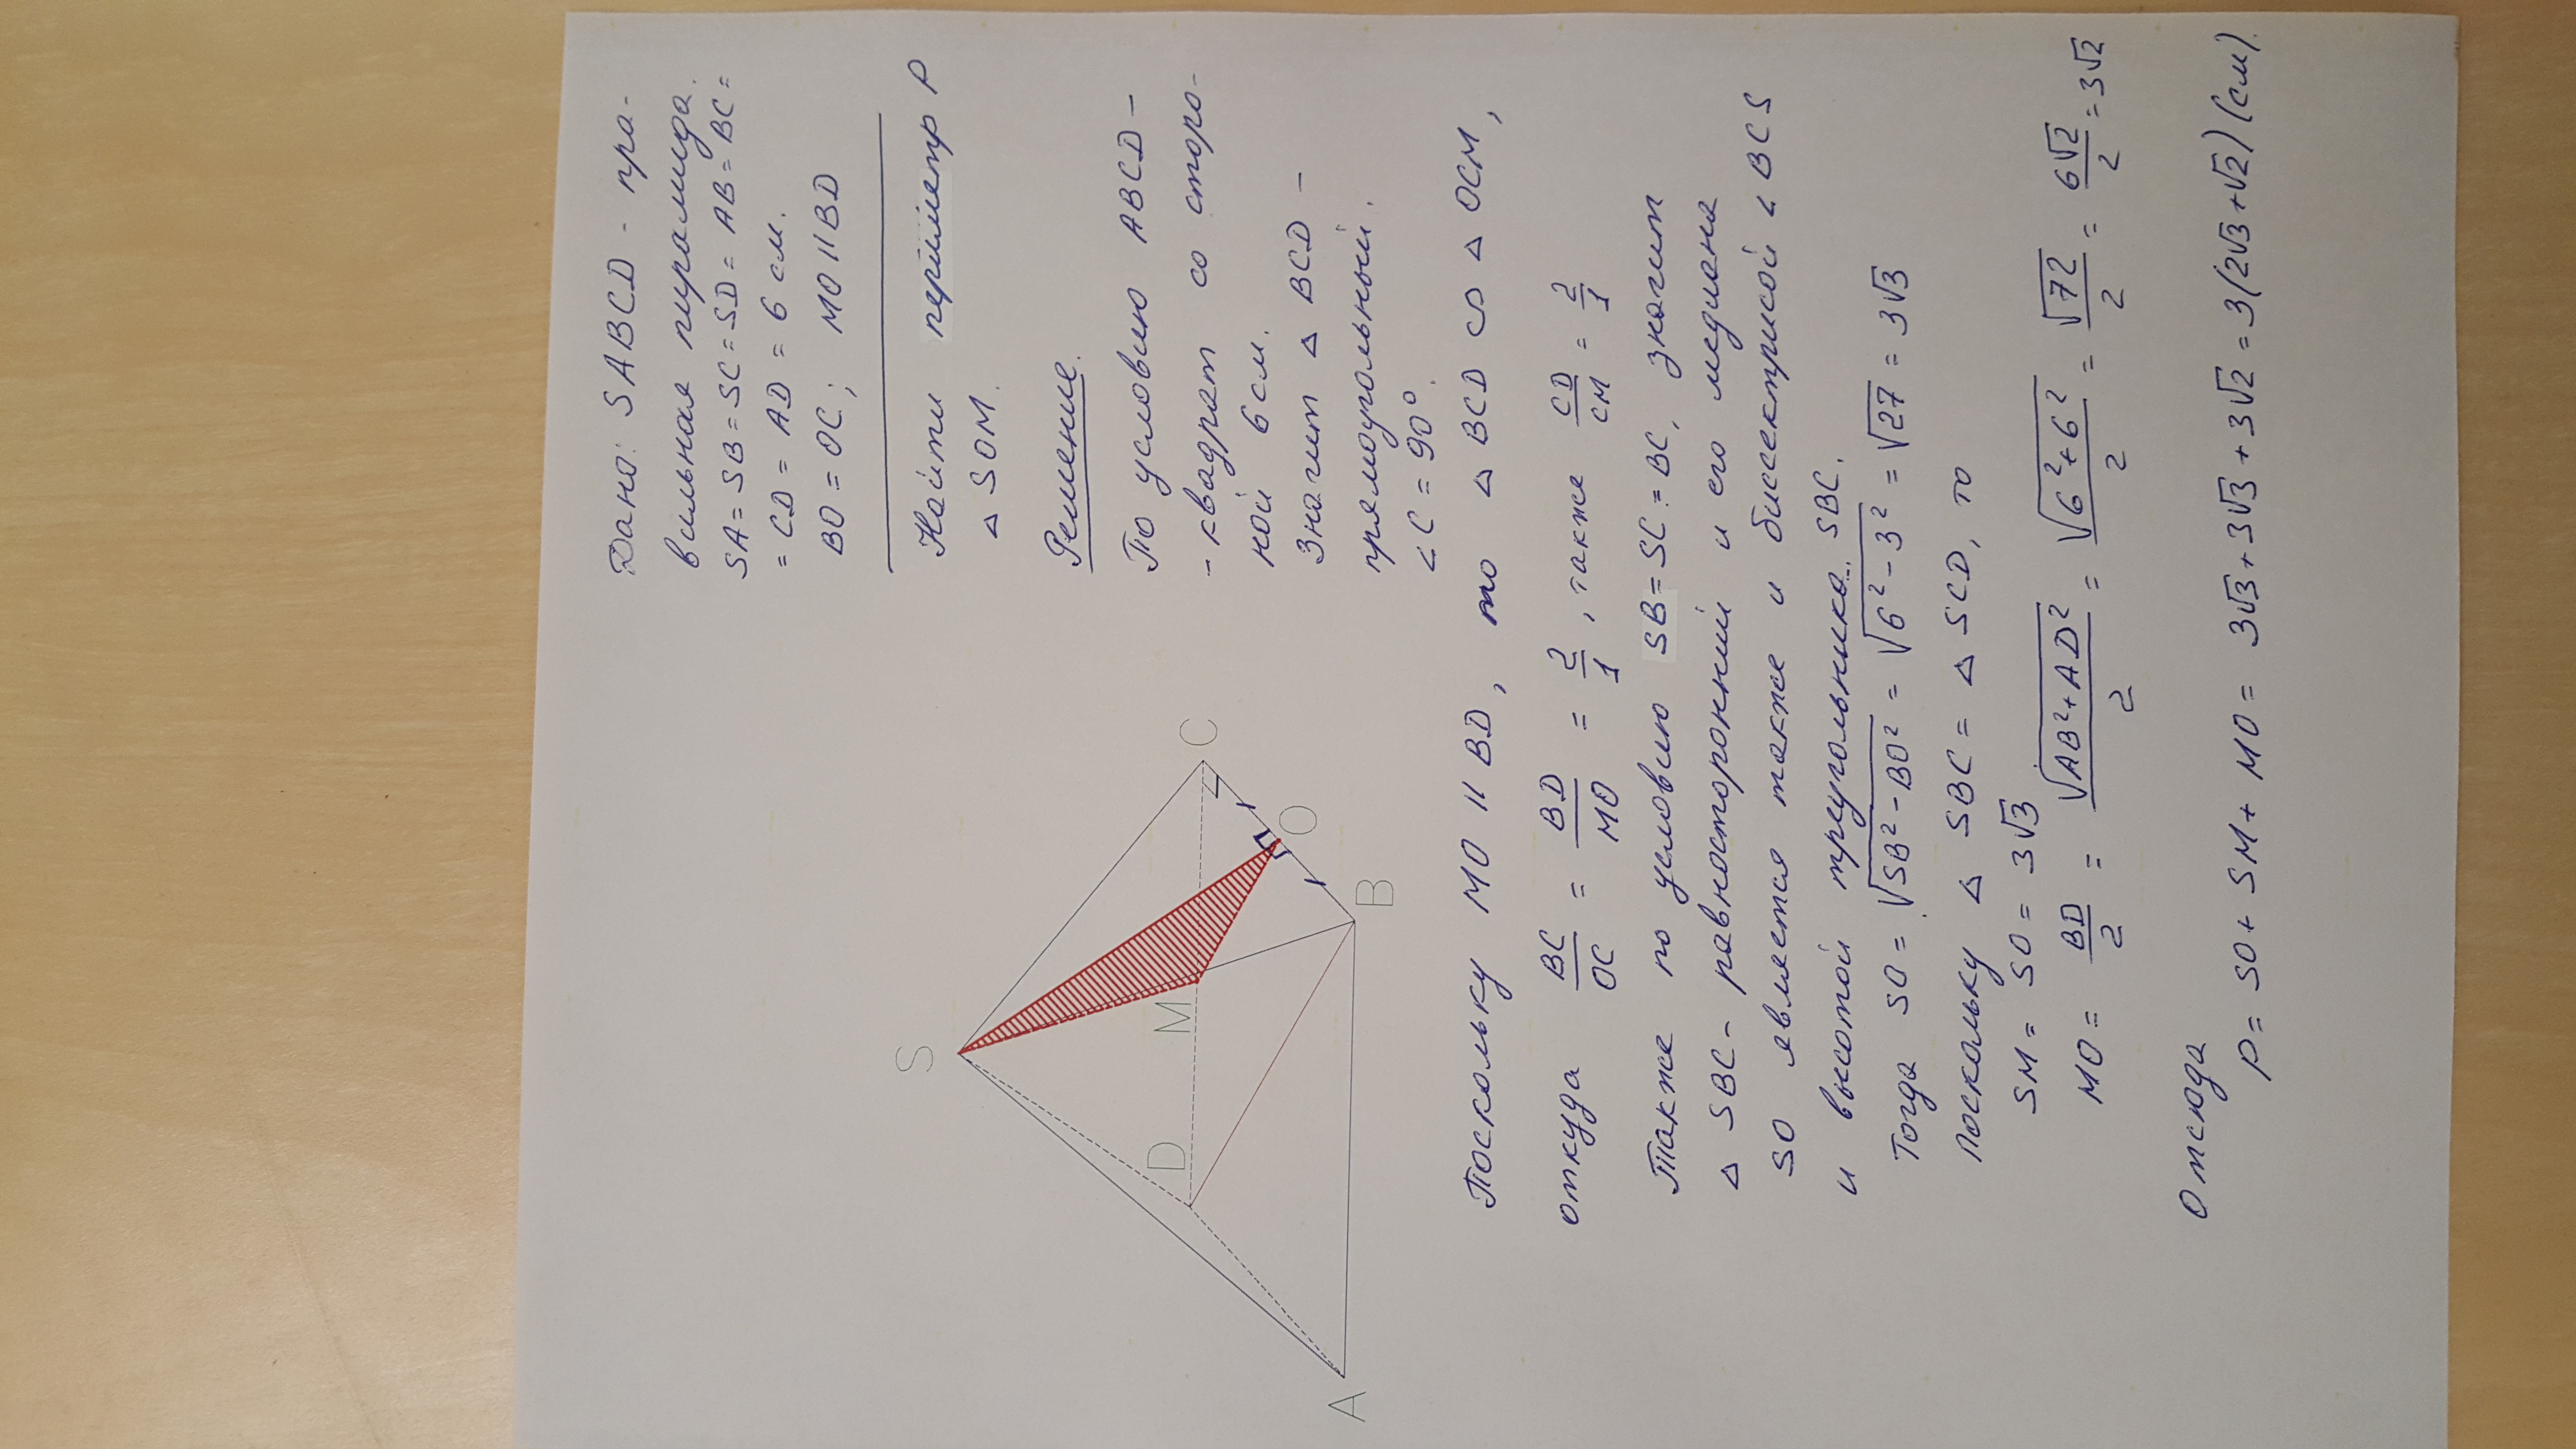 Дано: SABCD - пра-
вильная пирамида.
SA = SB = SC = SD = AB = BC =
= CD = AD = 6 см.
BO = OC; MO || BD
Найти периметр P
△ SOM.
Решение.
По условию ABCD -
- квадрат со сторо-
ной 6 см.
Значит △ BCD -
прямоугольный.
∠C = 90°.
S
D
M
C
O
B
A
Поскольку MO || BD, то △ BCD ∽ △ OCM,
откуда BC/OC = BD/MO = 2/1, также CD/CM = 2/1
Также по условию SB = SC = BC, значит
△ SBC - равносторонний и его медиана
SO является также и биссектрисой ∠ BCS
и высотой треугольника SBC.
Тогда SO = √(SB² - BO²) = √(6² - 3²) = √27 = 3√3
Поскольку △ SBC = △ SCD, то
SM = SO = 3√3
MO = BD/2 = √(AB² + AD²)/2 = √(6² + 6²)/2 = √72/2 = 6√2/2 = 3√2
Отсюда
P = SO + SM + MO = 3√3 + 3√3 + 3√2 = 3(2√3 + √2) (см).